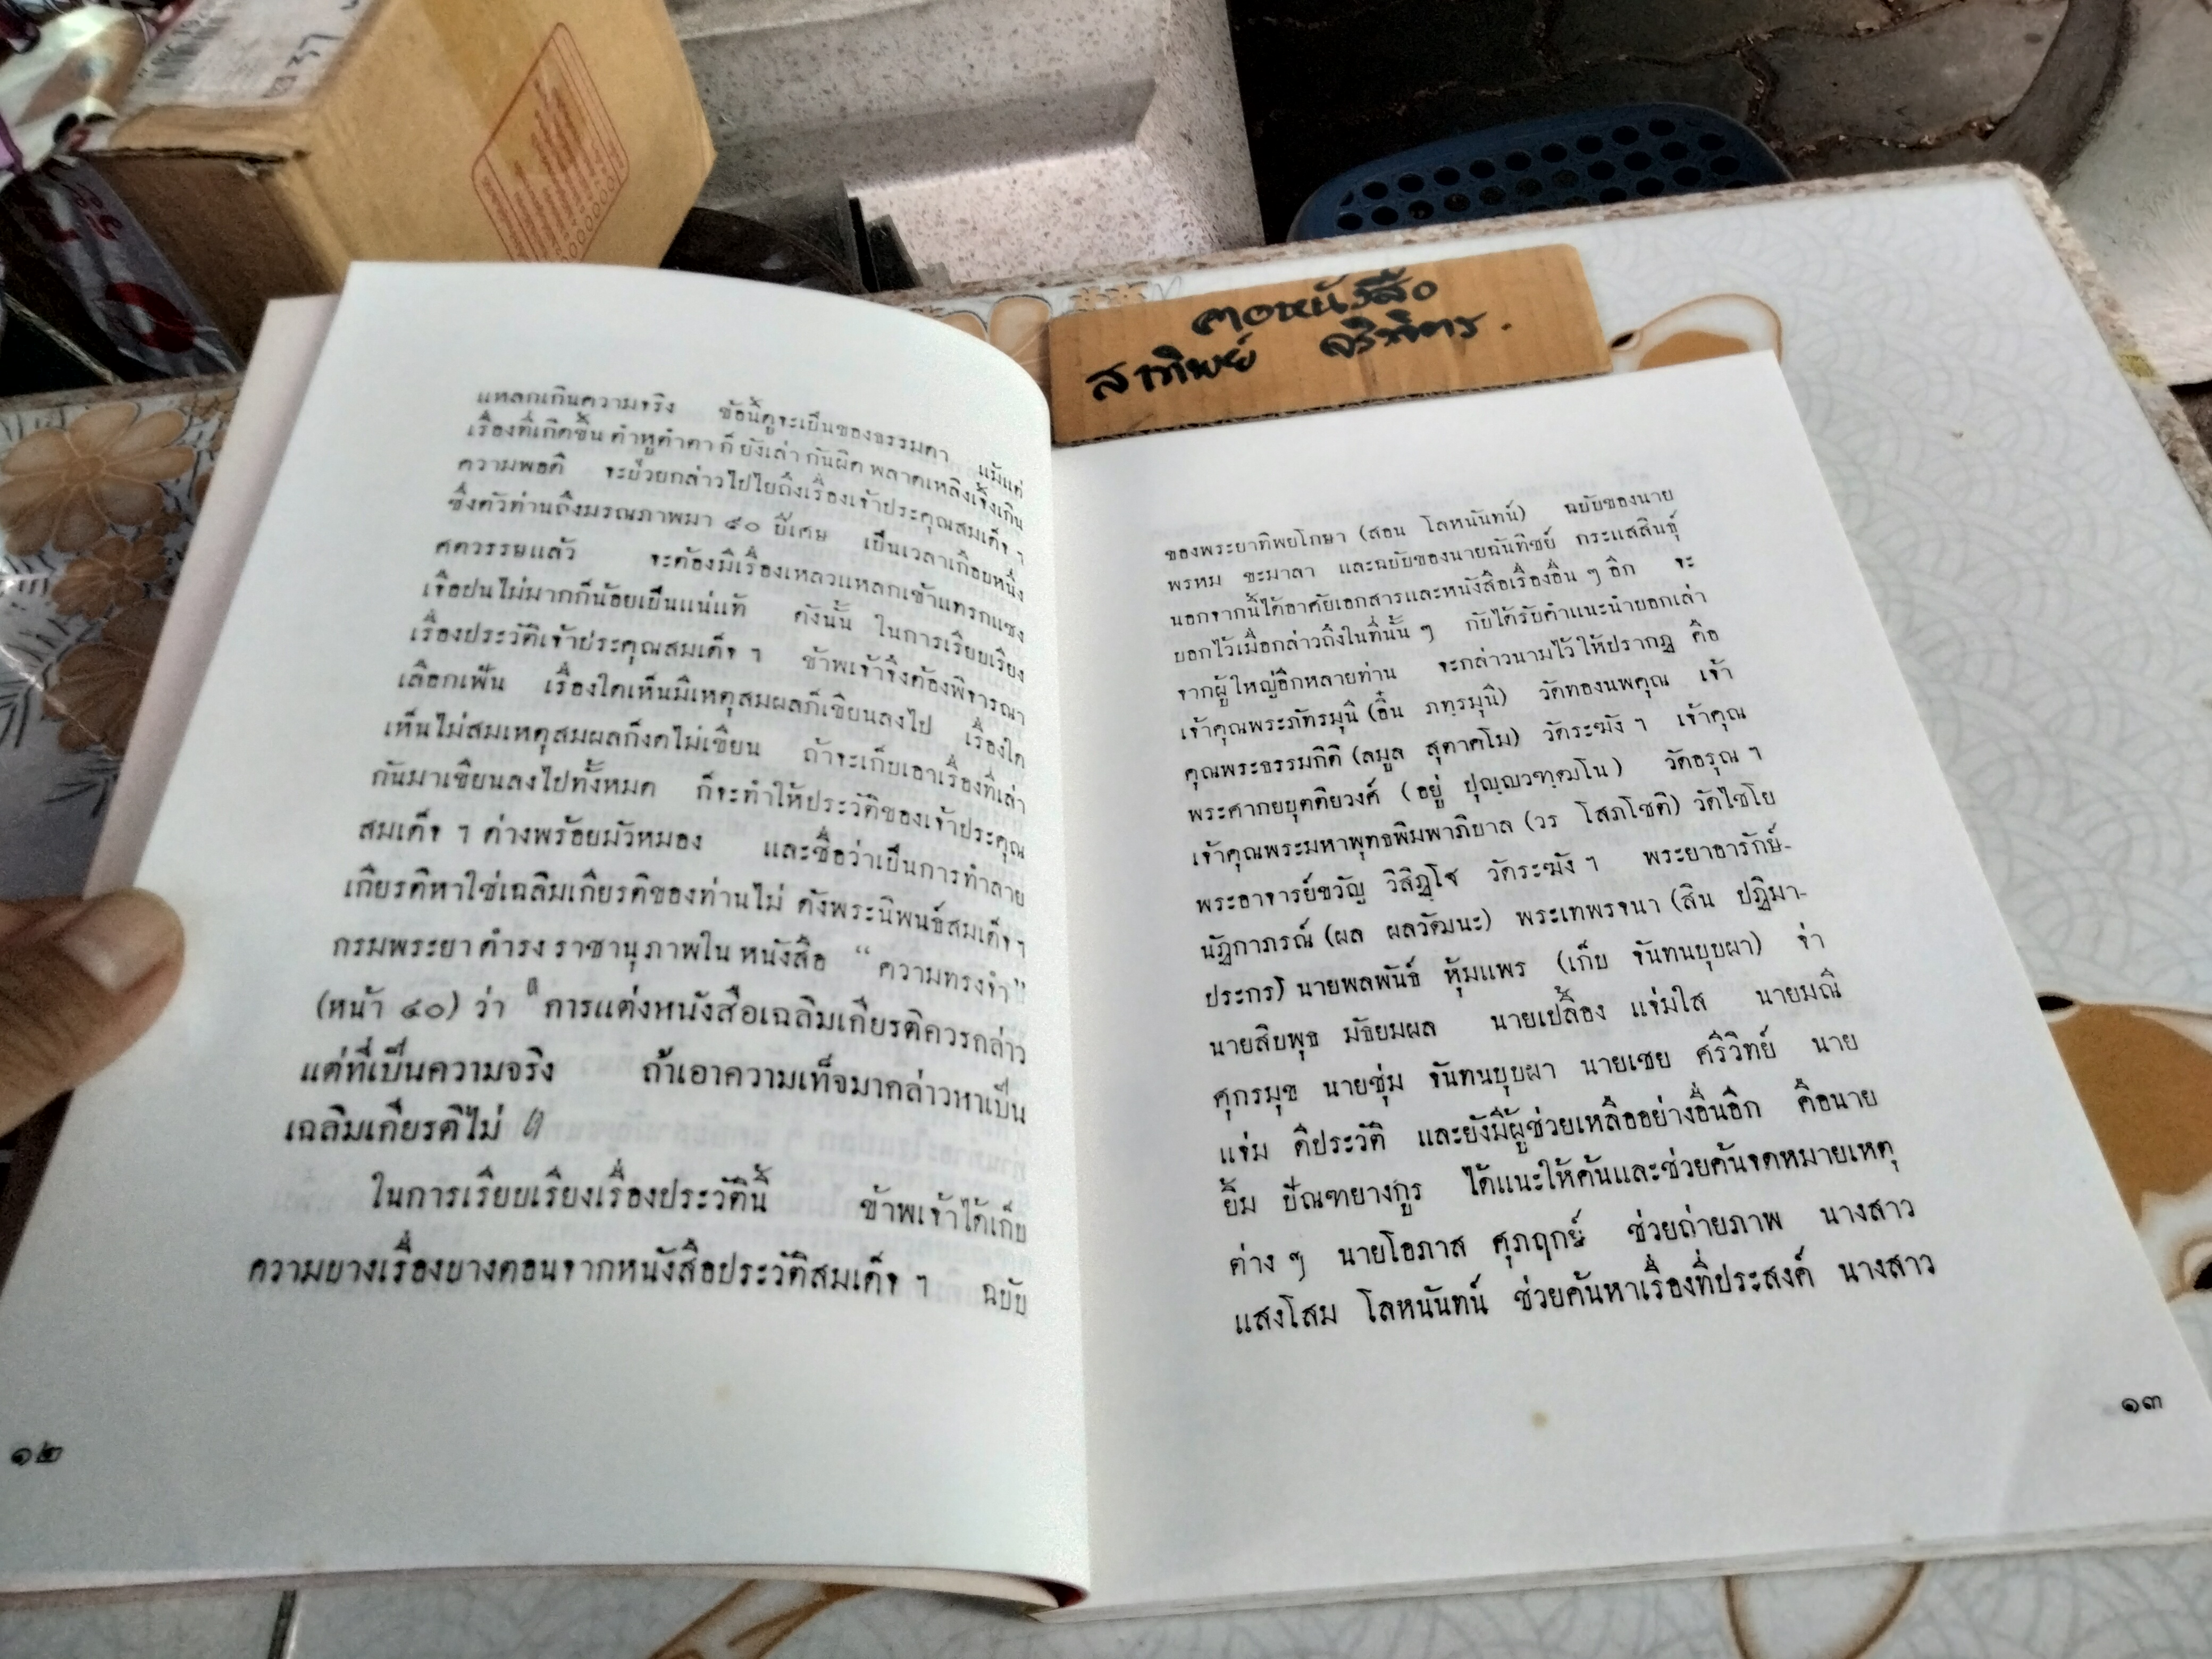 คอหนังสือ
สาทิพย์
แหลกเกินความจริง ข้อนี้ดูจะเป็นของธรรมดา แม้แต่
เรื่องที่เกิดขึ้น ตำหูตำตา ก็ ยังเล่า กันผิด พลาดเหลิงเจิ้งเกิน
ความพอดี จะป่วยกล่าวไปไยถึงเรื่องเจ้าประคุณสมเด็จ ฯ
ซึ่งตัวท่านถึงมรณภาพมา ๙๐ ปีเศษ เป็นเวลาเกือบหนึ่ง
ศตวรรษแล้ว จะต้องมีเรื่องเหลวแหลกเข้าแทรกแซง
เจือปนไม่มากก็น้อยเป็นแน่แท้ ดังนั้น ในการเรียบเรียง
เรื่องประวัติเจ้าประคุณสมเด็จ ฯ ข้าพเจ้าจึงต้องพิจารณา
เลือกเฟ้น เรื่องใดเห็นมีเหตุสมผลก็เขียนลงไป เรื่องใด
เห็นไม่สมเหตุสมผลก็งดไม่เขียน ถ้าจะเก็บเอาเรื่องที่เล่า
กันมาเขียนลงไปทั้งหมด ก็จะทำให้ประวัติของเจ้าประคุณ
สมเด็จ ฯ ด่างพร้อยมัวหมอง และชื่อว่าเป็นการทำลาย
เกียรติหาใช่เฉลิมเกียรติของท่านไม่ ดังพระนิพนธ์สมเด็จฯ
กรมพระยา ดำรง ราชานุ ภาพใน หนังสือ “ ความทรงจำ ”
(หน้า ๔๐) ว่า " การแต่งหนังสือเฉลิมเกียรติควรกล่าว
แต่ที่เป็นความจริง ถ้าเอาความเท็จมากล่าวหาเป็น
เฉลิมเกียรติไม่ "
ในการเรียบเรียงเรื่องประวัตินี้ ข้าพเจ้าได้เก็บ
ความบางเรื่องบางตอนจากหนังสือประวัติสมเด็จ ฯ ฉบับ
๑๒
ของพระยาทิพยโกษา (สอน โลหนันทน์) ฉบับของนาย
พรหม ขะมาลา และฉบับของนายฉันทิชย์ กระแสสินธุ์
นอกจากนี้ได้อาศัยเอกสารและหนังสือเรื่องอื่น ๆ อีก จะ
บอกไว้เมื่อกล่าวถึงในที่นั้น ๆ กับได้รับคำแนะนำบอกเล่า
จากผู้ ใหญ่อีกหลายท่าน จะกล่าวนามไว้ ให้ปรากฏ คือ
เจ้าคุณพระภัทรมุนี (อิ๋น ภทฺรมุนิ) วัดทองนพคุณ เจ้า
คุณพระธรรมกิติ (ลมูล สุตาคโม) วัดระฆัง ฯ เจ้าคุณ
พระศากยบุตติยวงศ์ (อยู่ ปุญฺญวฑฺฒโน) วัดอรุณ ฯ
เจ้าคุณพระมหาพุทธพิมพาภิบาล (วร โสภโชติ) วัดไชโย
พระอาจารย์ขวัญ วิสิฏฺโฐ วัดระฆัง ฯ พระยาอารักษ์-
นัฏกาภรณ์ (ผล ผลวัฒนะ) พระเทพรจนา (สิน ปฏิมา-
ประกร) นายพลพันธ์ หุ้มแพร (เก็บ จันทนบุบผา) จ่า
นายสิบพุธ มัธยมผล นายเปลื้อง แจ่มใส นายมณี
ศุกรมุข นายชุ่ม จันทนบุบผา นายเชย ศริวิทย์ นาย
แจ่ม ดีประวัติ และยังมีผู้ช่วยเหลืออย่างอื่นอีก คือนาย
ยิ้ม ปัณฑยางกูร ได้แนะให้ค้นและช่วยค้นจดหมายเหตุ
ต่าง ๆ นายโอภาส ศุภฤกษ์ ช่วยถ่ายภาพ นางสาว
แสงโสม โลหนันทน์ ช่วยค้นหาเรื่องที่ประสงค์ นางสาว
๑๓